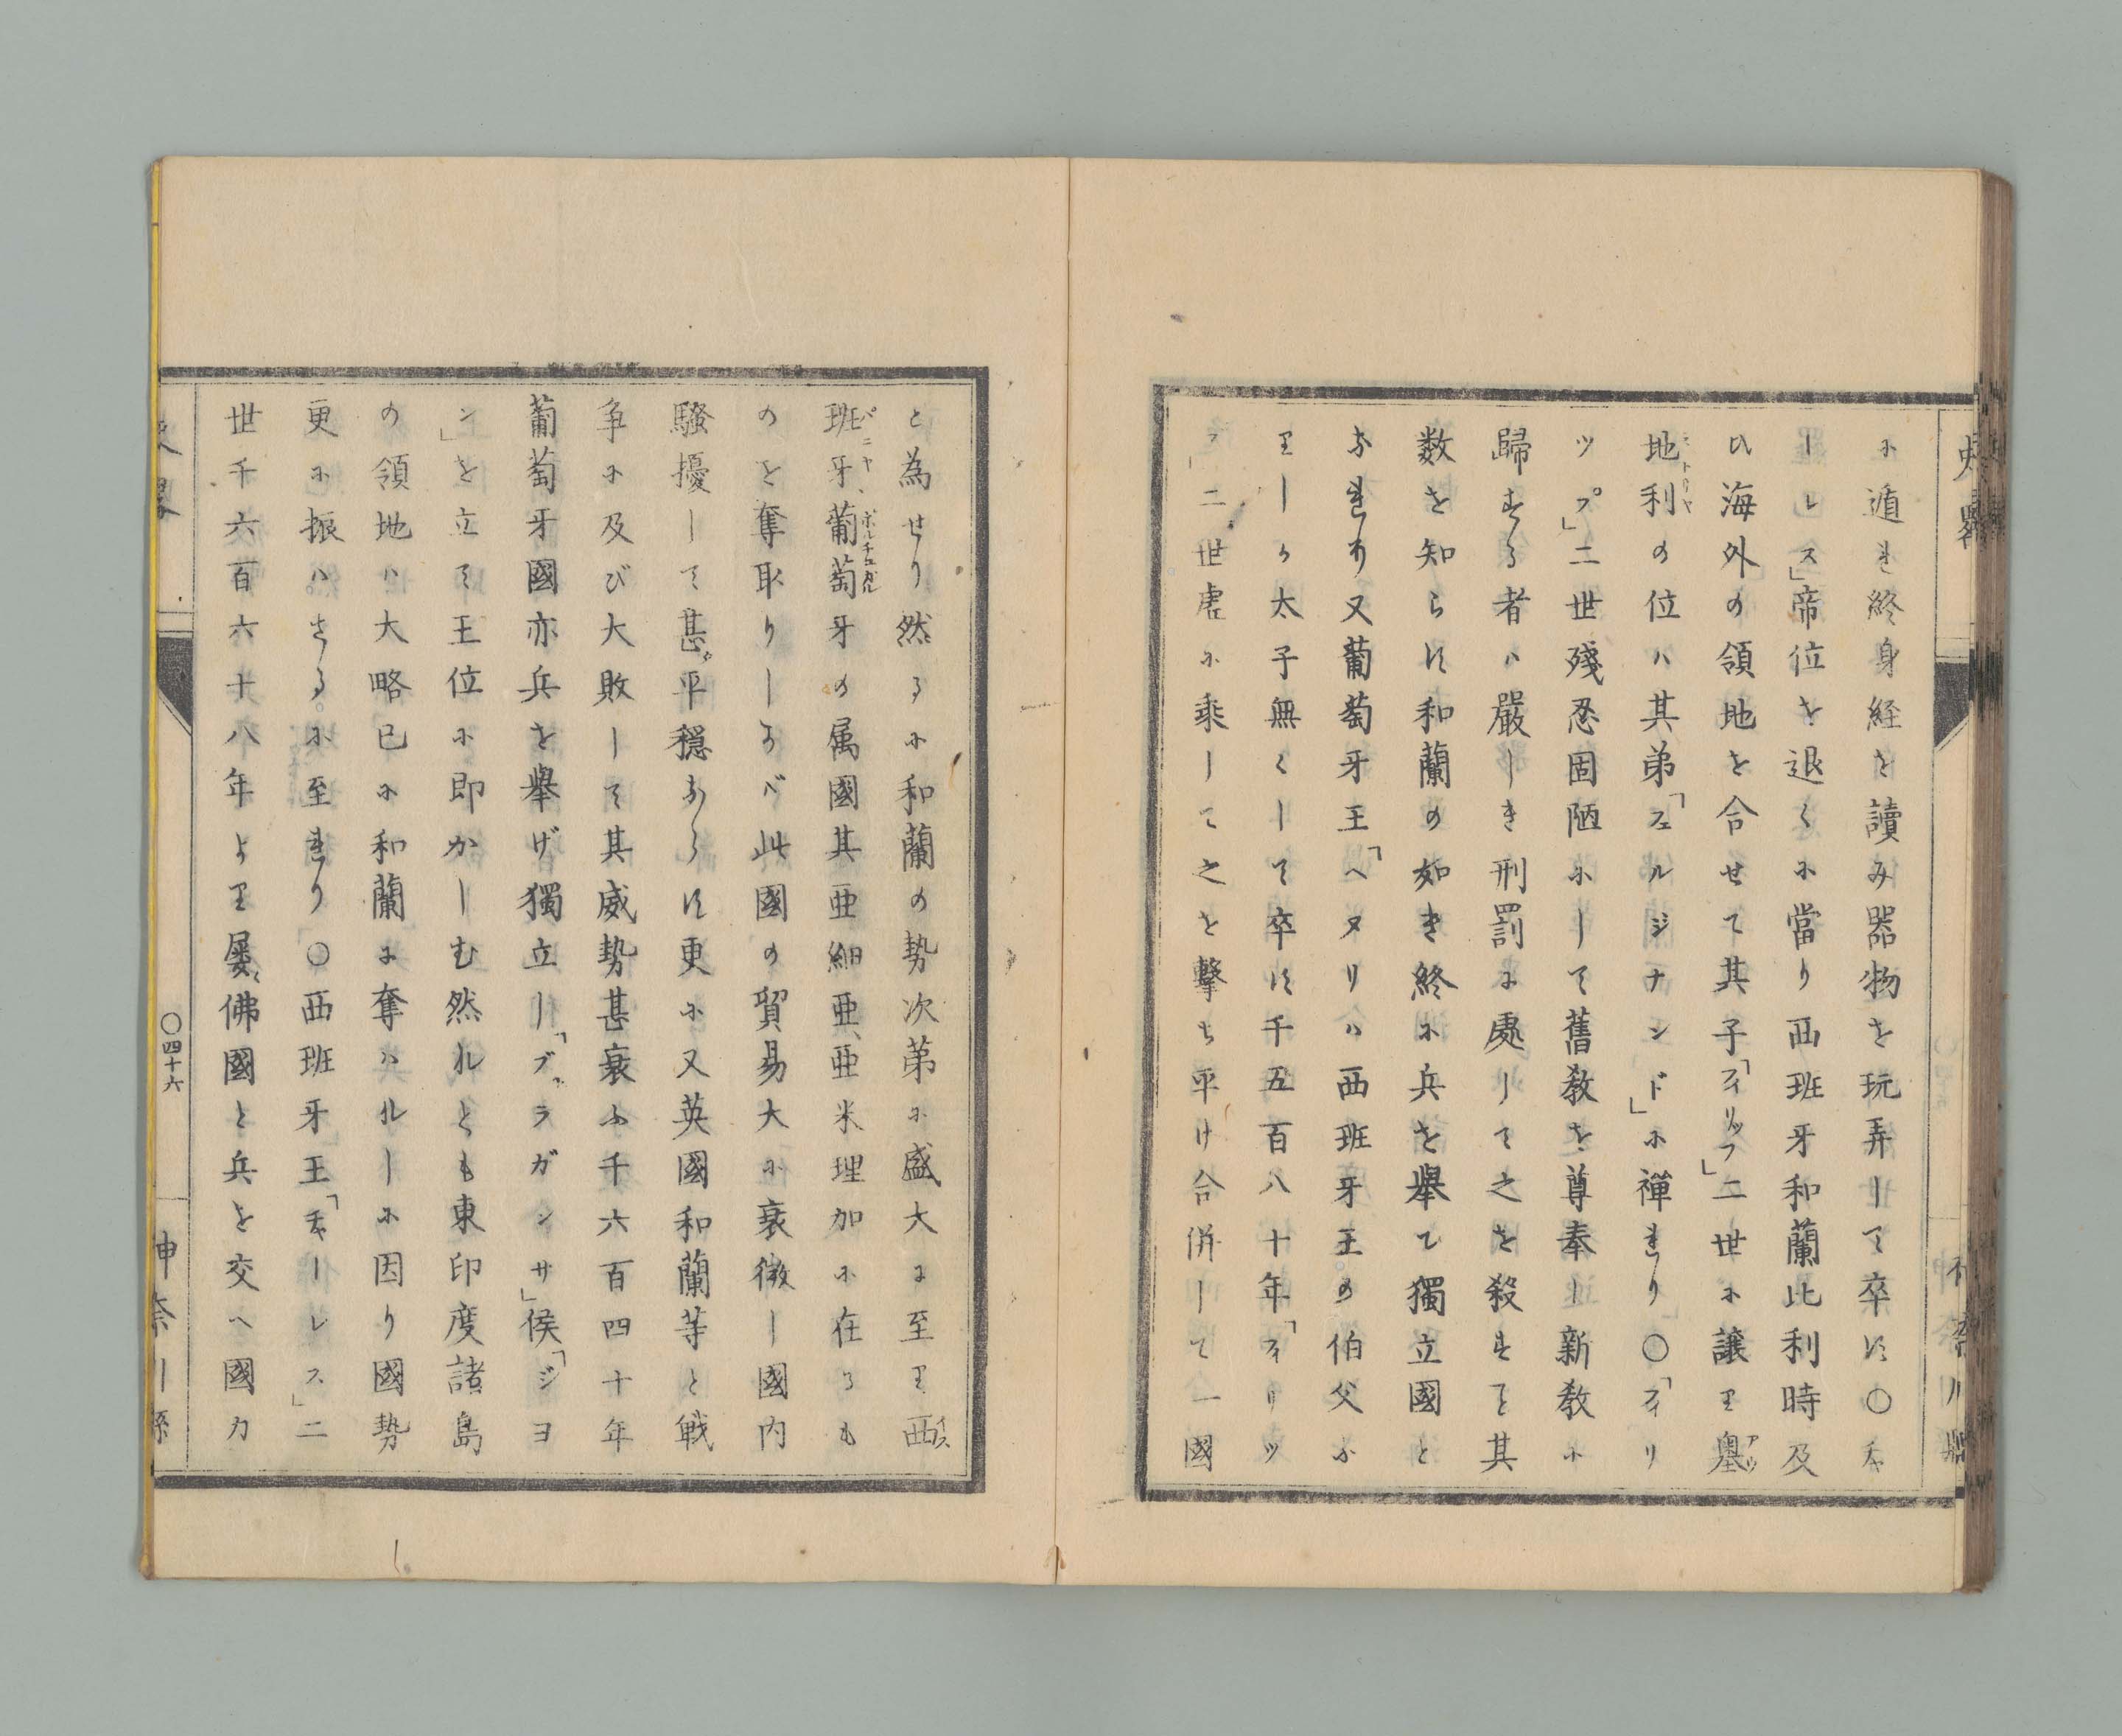 史畧
に遁れ終身経を讀み器物を玩弄して卒す〇チャ
ーレス」帝位を退くに當り西班牙和蘭比利時及
ひ海外の領地を合せて其子「フィリップ」二世に譲り墺アウ
地利ストリヤの位ハ其弟「フェルジナンド」に禪れり〇「フィリ
ップ」二世殘忍固陋にして舊教を尊奉し新教に
歸する者ハ嚴しき刑罰に處して之を殺すこと其
数を知らす和蘭の如き終に兵を舉て獨立國と
なれり又葡萄牙王「ヘヌリハ西班牙王の伯父な
りしか太子無くして卒す千五百八十年「フィリッ
プ」二世虚に乘して之を擊ち平け合併して一國
と為せり然るに和蘭の勢次第に盛大に至り西イス
班牙パニヤ、葡萄牙ポルチュガルの属國其亜細亜、亜米理加に在るも
のを奪取りしかバ此國の貿易大に衰微し國内
騒擾して甚た平穏ならす更に又英國和蘭等と戦
争に及び大敗して其威勢甚衰ふ千六百四十年
葡萄牙國亦兵を舉げ獨立し「ブラガンサ」侯「ジョ
ン」を立て王位に即かしむ然ルとも東印度諸島
の領地ハ大略已に和蘭に奪ハルしに因り國勢
更に振ハさるに至れり〇西班牙王「チャーレス」二
世千六百六十八年より屡佛國と兵を交へ國力
〇四十六